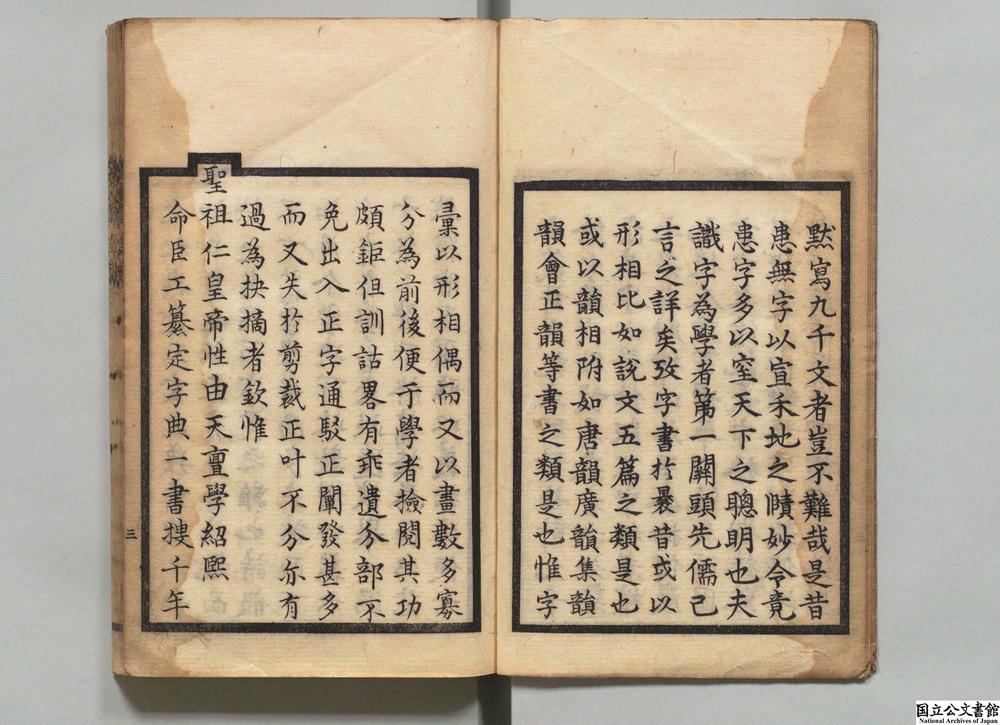 默寫九千文者豈不難哉是昔
患無字以宣禾地之賾妙今竟
患字多以窒天下之聰明也夫
識字為學者第一關頭先儒已
言之詳矣攷字書於曩昔或以
形相比如說文五篇之類是也
或以韻相附如唐韻廣韻集韻
韻會正韻等書之類是也惟字
彙以形相偶而又以畫數多寡
分為前後便于學者撿閱其功
頗鉅但訓詁畧有乖遺分部不
免出入正字通駁正闡發甚多
而又失於剪裁正叶不分亦有
過為抉摘者欽惟
聖祖仁皇帝性由天亶學紹熙
命臣工纂定字典一書搜千年
三
国立公文書館
National Archives of Japan